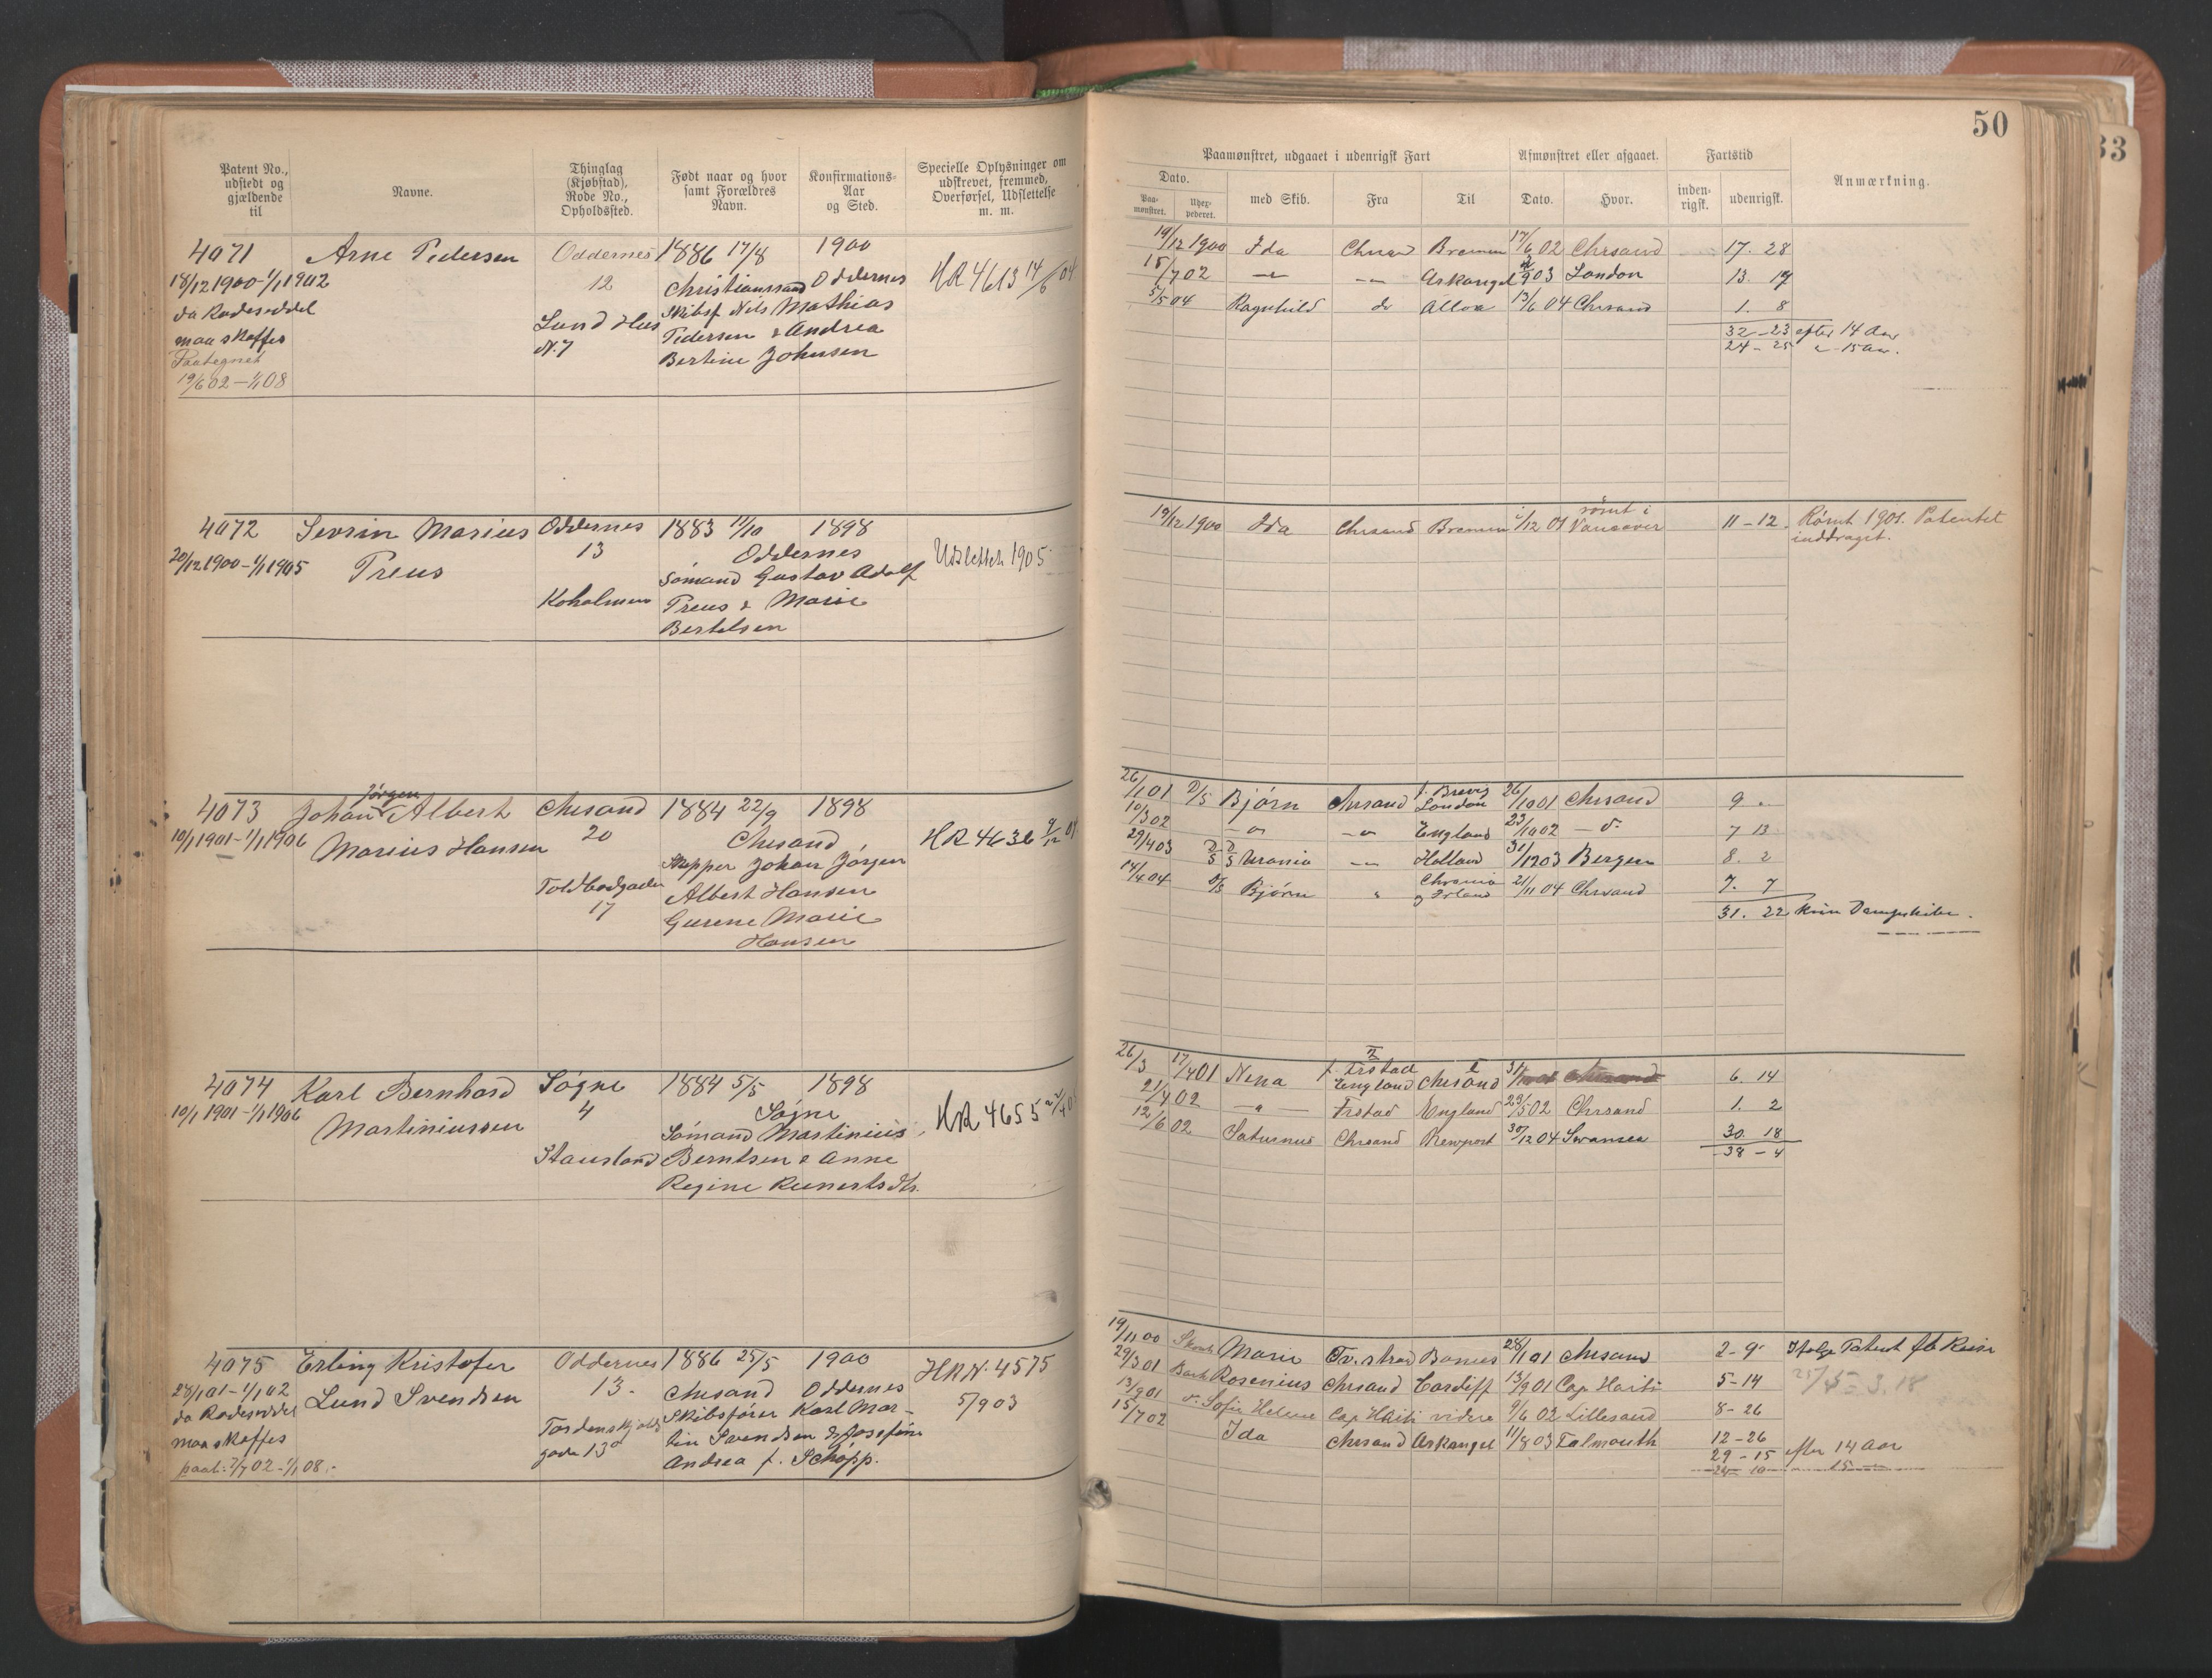 50
33
Patent No., udstedt og gjældende til
Navne.
Thinglag (Kjøbstad), Rode No., Opholdssted.
Født naar og hvor samt Forældres Navn.
Konfirmations-Aar og Sted.
Specielle Oplysninger om udskrevet, fremmed, Overførsel, Udslettelse m. m.
Paamønstret, udgaaet i udenrigsk Fart
Afmønstret eller afgaaet.
Fartstid
Anmærkning.
Dato.
Paa-mønstret.
Udex-pederet.
med Skib.
Fra
Til
Dato.
Hvor.
inden-rigsk.
udenrigsk.
4071 Arne Pedersen Oddernes 1886 17/8 1900
18/12 1900-1/1 1902 12 Christianssand Oddernes HR 4613 14/6 04
da Rodeseddel Lund Hus Skibsf. Nils Mathias
maa skaffes N. 7 Pedersen & Andrea
Paategnet Bertine Johnsen
19/6 02-1/1 08
19/12 1900 Ida Chrsand Bremen 17/6 02 Chrsand 17. 28
15/7 02 Askangel 03 London 13. 17
5/5 04 Ragnhild do Alloa 13/6 04 Chrsand 1. 8
32-23 efter 14 Aar
24-25 " 15 Aar.
4072 Sevrin Marius Oddernes 1883 11/10 1898
20/12 1900-1/1 1905 Preus 13 Oddernes Udslettet 1905
Sømand Gustav Adolf
Koholmen Preus & Marie
Bertelsen
19/12 1900 Ida Chrsand Bremen 1/12 01 rømt i Vancover 11-12. Rømt 1901. Patentet
inddraget.
4073 Johan Jørgen Albert Chrsand 1884 22/9 1898
10/1 1901-1/1 1906 Marius Hansen 20 Chrsand HR 4636 9/12 04
Skipper Johan Jørgen
Toldbodgaden Albert Hansen
17 Gurene Marie
Hansen
26/1 01 D/S Bjørn Chrsand f. Brevig London 26/10 01 Chrsand 9 "
10/3 02 England 23/10 02 7 13
29/4 03 D/S Urania Holland 31/12 03 Bergen 8. 2
14/4 04 D/S Bjørn Chrania og Irland 21/11 04 Chrsand 7. 7
31. 22 kun Dampskibe.
4074 Karl Bernhard Søgne 1884 5/5 1898
10/1 1901-1/1 1906 Martiniussen 4 Søgne HR 4655
Sømand Martinius
Stausland Berntsen & Anne
Regine Reinertsdtr.
26/3 17/4 01 Nena f. Frstad England Chrsand 6. 14
21/4 02 Frstad England 23/5 02 Chrsand 1. 2
12/6 02 Saturnus Chrsand Newport 30/12 04 Swansea 30. 18
38-4
4075 Erling Kristofer Oddernes 1886 25/5 1900 HR N. 4575
28/1 01-1/1 02 Lund Svendsen 13. Chrsand Oddernes 5/9 03
da Rodeseddel Skibsfører Karl Mar-
maa skaffes Tordenskjolds tin Svendsen & Josefine
paat. 7/7 02-1/1 08. gade 13 Andrea f. Schøpp.
19/11 00 Marie Tv.strand 28/1 01 Chrsand 2-9 Ifølge Patent
29/3 01 Bark Rosenius Chrsand Cardiff 13/9 01 Cap Haiti 5-14
13/9 01 Sofie Helene Cap Haiti videre 9/6 02 Lillesand 8-26
15/7 02 Ida Chrsand Askangel 11/8 03 Falmouth 12-26
29-15 efter 14 Aar
24-10 15